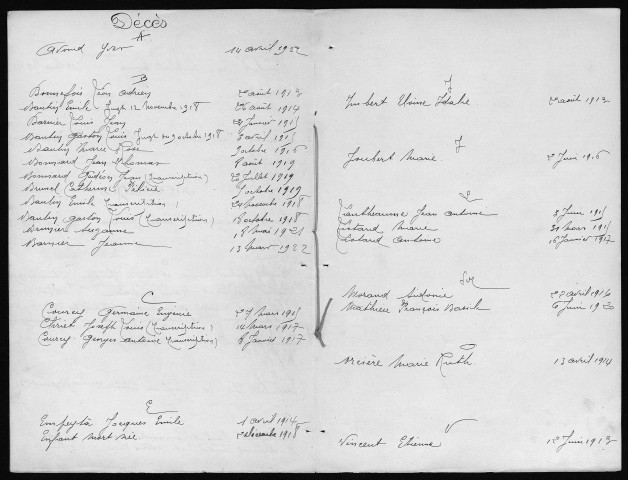 Décès
A
Yvan 14 avril 1922
B
Bonnefois Jean Adrien 2 août 1913
Bautin Emile Jugt 12 Novembre 1918 26 août 1914
Barnier Louis Jean Janvier 1915
Bautin Gaston Louis Jugt 9 octobre 1918 1915
Bautin Marie Rose octobre 1916
Bonnard Jean août 1919
Bonnard Gédéon Jean (transcription) 22 Juillet 1919
Brunel Catherine octobre 1919
Bautin Emile (transcription) novembre 1918
Bautin Gaston Louis (transcription) octobre 1918
Suzanne 18 Mai 1921
Barnier Jeanne 13 Mars 1922
C
Courcy Germaine Eugenie 27 Mars 1915
Joseph Louis (transcription) 14 Mars 1917
Courcy Georges Antoine (transcription) 8 Janvier 1917
E
Empeyta Jacques Emile 1 avril 1914
Enfant mort né 2 décembre 1918
I
Imbert août 1913
J
Joubert Marie 2 Juin 1916
L
Jean Antoine 8 Juin 1915
Liotard Marie 31 Mars 1915
Liotard Antoine 16 Janvier 1917
M
Morand Sidonie 22 avril 1916
Mathieu François Basile 6 Juin 1920
O
Orcière Marie Ruth 13 avril 1914
V
Vincent Etienne 12 Juin 1913